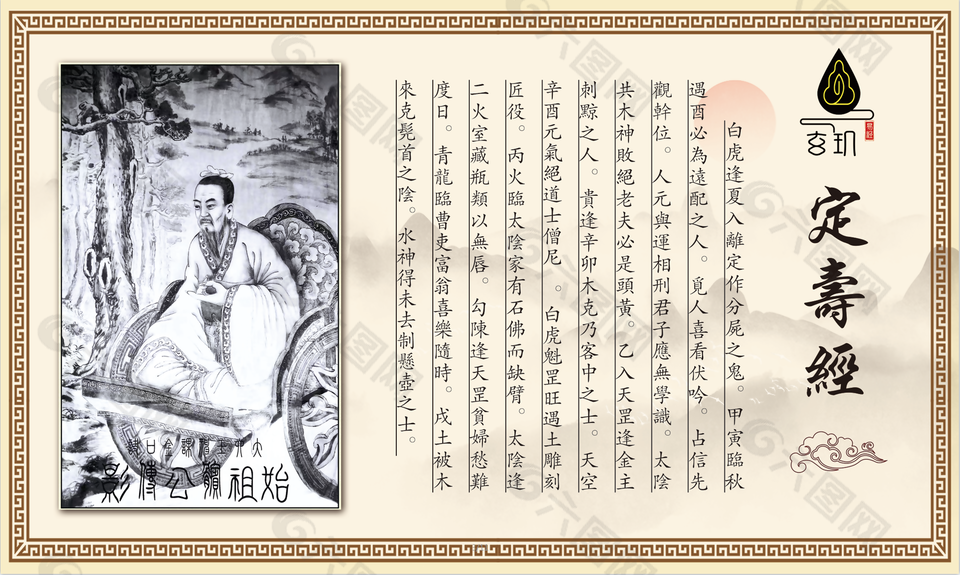 玄玑
定壽經
白虎逢夏入離定作分屍之鬼。甲寅臨秋
遇酉必為遠配之人。覓人喜看伏吟。占信先
觀幹位。人元與運相刑君子應無學識。太陰
共木神敗絕老夫必是頭黃。乙入天罡逢金主
刺黥之人。貴逢辛卯木克乃客中之士。天空
辛酉元氣絕道士僧尼。白虎魁罡旺遇土雕刻
匠役。丙火臨太陰家有石佛而缺臂。太陰逢
二火室藏瓶類以無唇。勾陳逢天罡貧婦愁難
度日。青龍臨曹吏富翁喜樂隨時。戌土被木
來克髡首之陰。水神得未去制懸壺之士。
大六壬道課金口訣
始祖孫公傳影
六图网
六图网
六图网
六图网
六图网
六图网